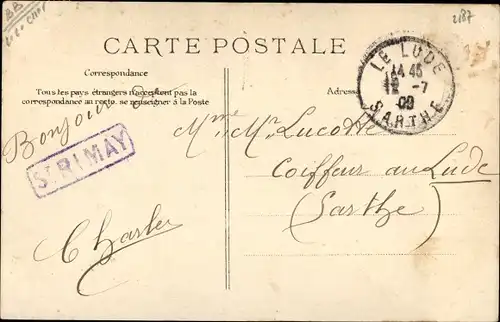 2187
CARTE POSTALE
Correspondance
Tous les pays étrangers n'acceptent pas la
correspondance au recto, se renseigner à la Poste
Adresse
LE LUDE
14 45
12 -7
09
SARTHE
Bonjour
St RIMAY
Charles
Mme Mr Lucotte
Coiffeur au Lude
(Sarthe)